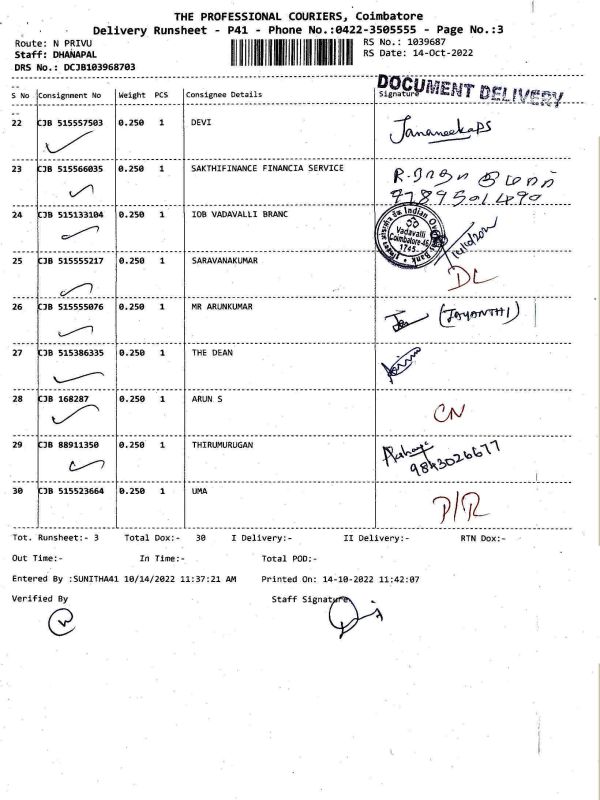 THE PROFESSIONAL COURIERS, Coimbatore
Delivery Runsheet - P41 - Phone No.:0422-3505555 - Page No.:3
Route: N PRIVU RS No.: 1039687
Staff: DHANAPAL RS Date: 14-Oct-2022
DRS No.: DCJB103968703
DOCUMENT DELIVERY
S No Consignment No Weight PCS Consignee Details Signature
22 CJB 515557503 0.250 1 DEVI
23 CJB 515566035 0.250 1 SAKTHIFINANCE FINANCIA SERVICE
24 CJB 515133104 0.250 1 IOB VADAVALLI BRANC
Vadavalli
Coimbatore-46
1745
25 CJB 515555217 0.250 1 SARAVANAKUMAR DL
26 CJB 515555076 0.250 1 MR ARUNKUMAR (JAYANTHI)
27 CJB 515386335 0.250 1 THE DEAN
28 CJB 168287 0.250 1 ARUN S CN
29 CJB 88911350 0.250 1 THIRUMURUGAN
9843026677
30 CJB 515523664 0.250 1 UMA D/R
Tot. Runsheet:- 3 Total Dox:- 30 I Delivery:- II Delivery:- RTN Dox:-
Out Time:- In Time:- Total POD:-
Entered By :SUNITHA41 10/14/2022 11:37:21 AM Printed On: 14-10-2022 11:42:07
Verified By Staff Signature